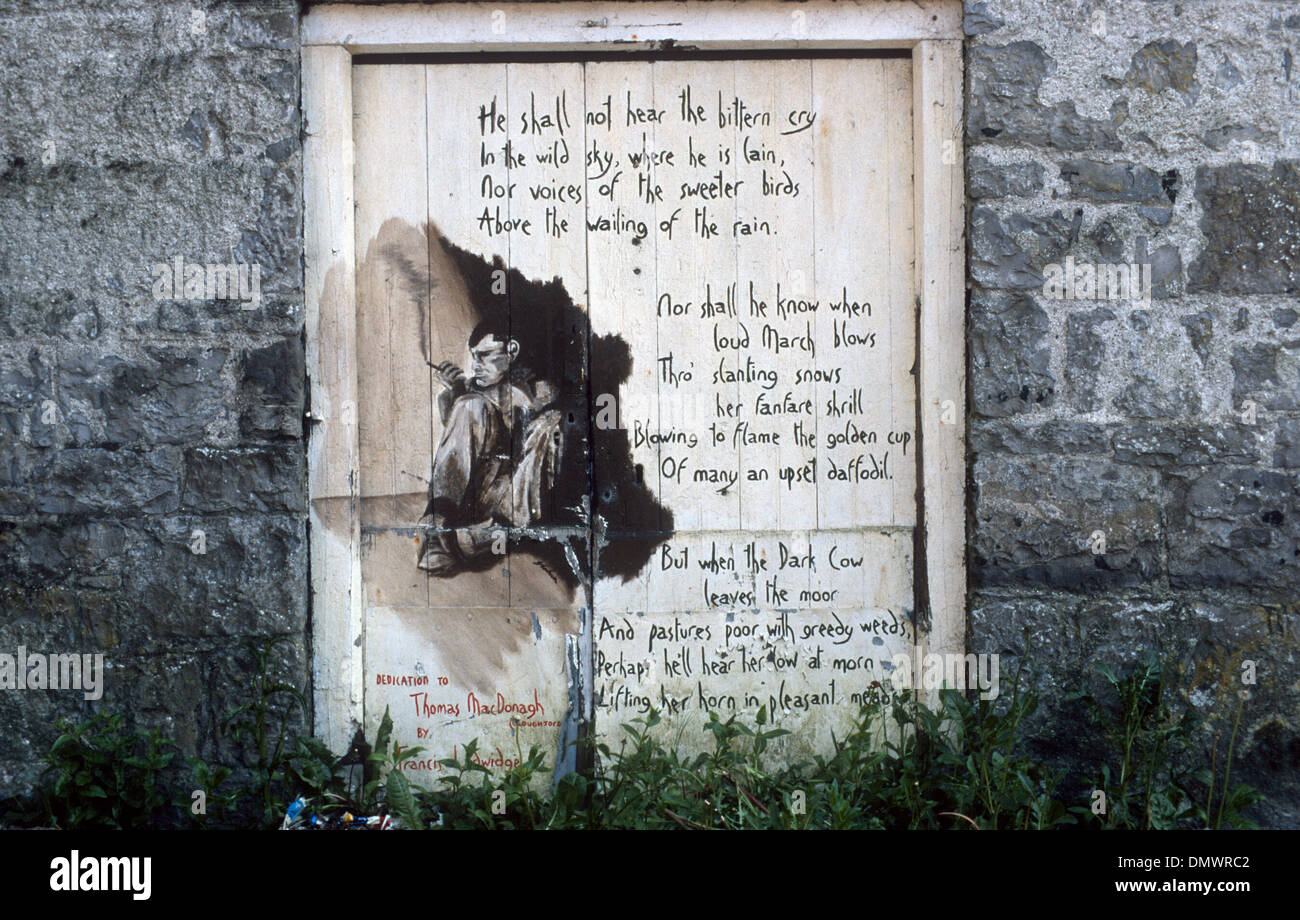 He shall not hear the bittern cry
In the wild sky, where he is lain,
Nor voices of the sweeter birds
Above the wailing of the rain.
Nor shall he know when
loud March blows
Thro' slanting snows
her fanfare shrill
Blowing to flame the golden cup
Of many an upset daffodil.
But when the Dark Cow
leaves the moor
And pastures poor with greedy weeds,
Perhaps he'll hear her low at morn
Lifting her horn in pleasant
DEDICATION TO
Thomas MacDonagh
BY,
Francis
alamy stock photo
DMWRC2
www.alamy.com